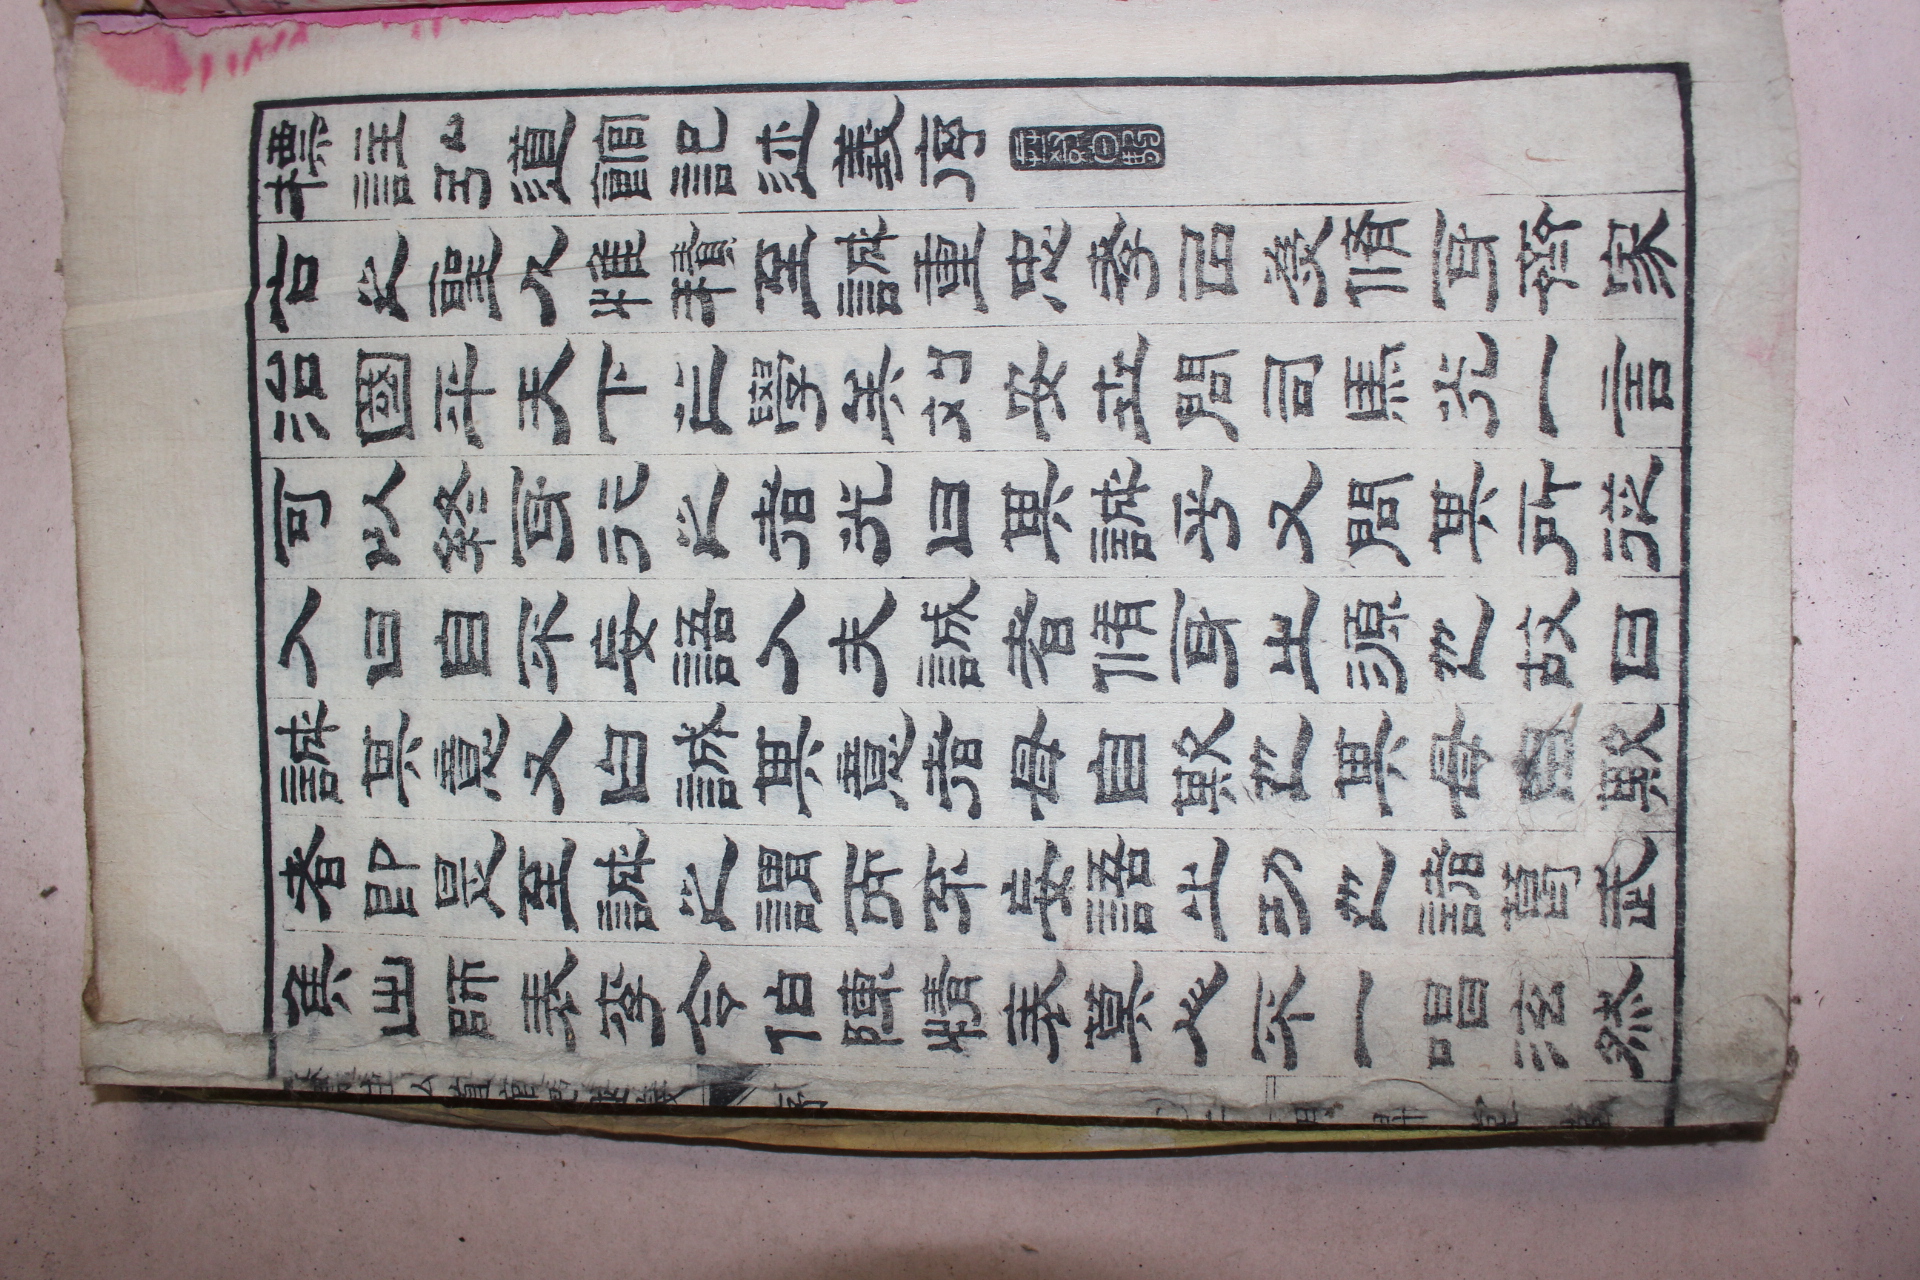 標註弘道館記述義序
古之聖人惟積至誠重忠孝㠯為脩身齊家
治國平天下之學矣刘安世問司馬光一言
可以終身行之者光曰其誠乎又問其所從
入曰自不妄語入夫誠者脩身之源也故曰
誠其意又曰誠其意者毋自欺也其毋自欺
者即是至誠之謂而不妄語之功也諸葛武
矦出師表李令伯陳情表莫人不一唱泫然
弘道館記述義 序